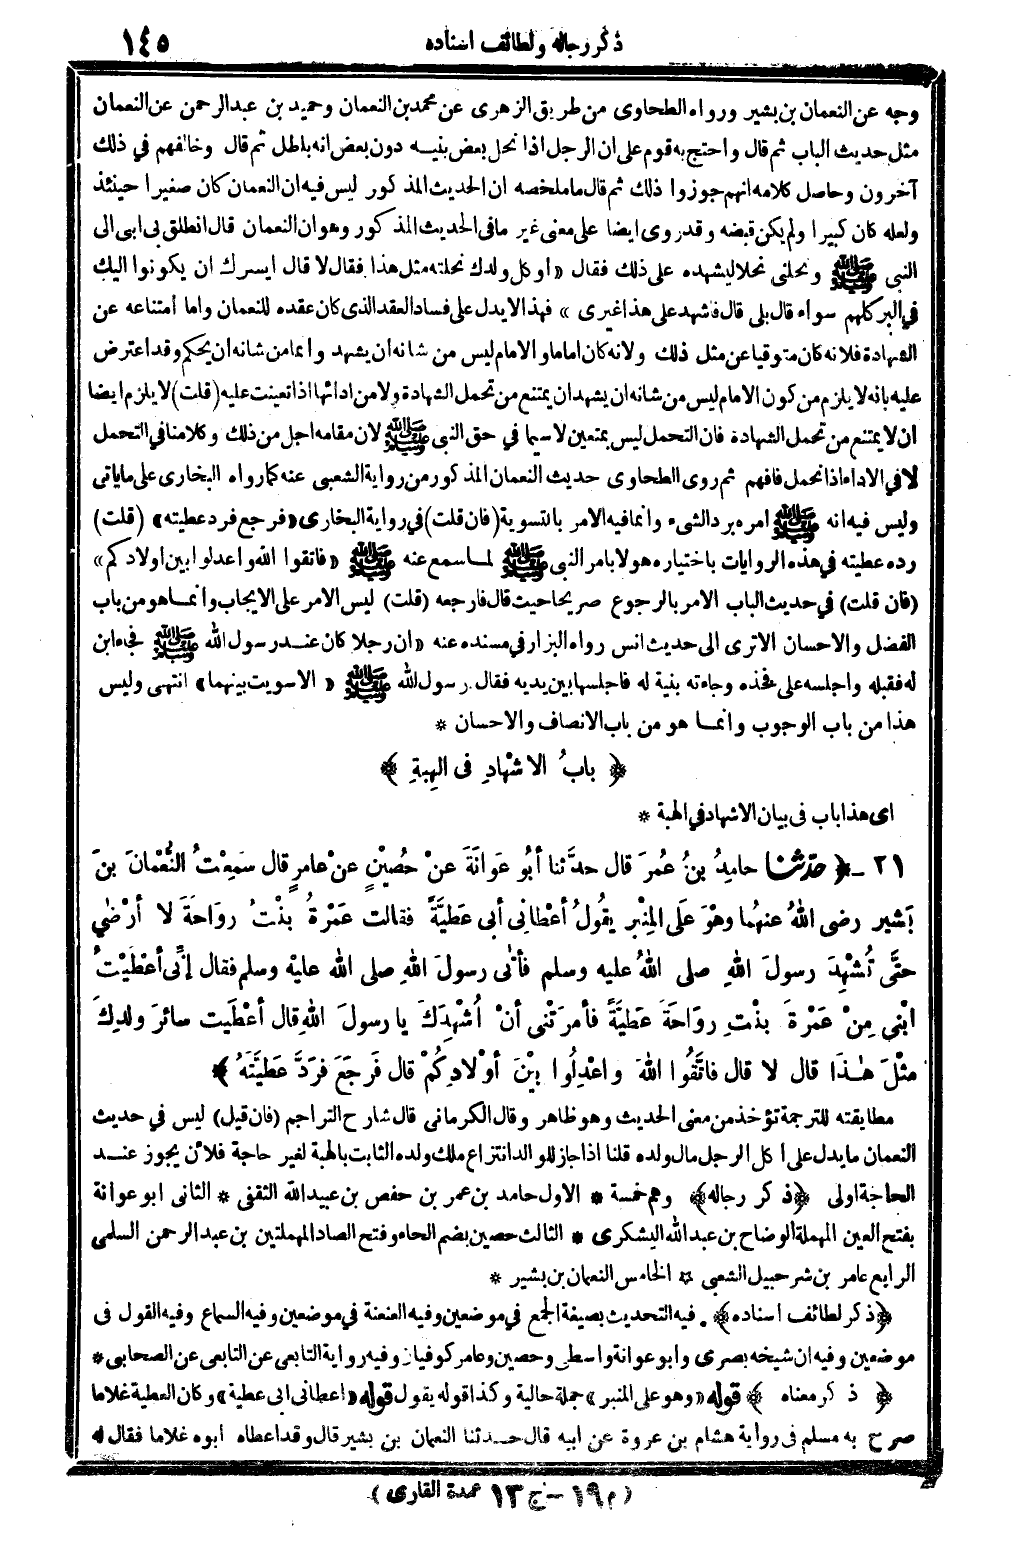 ذكر رجاله ولطائف اسناده ١٤٥
وجه عن النعمان بن بشير ورواه الطحاوى من طريق الزهرى عن محمد بن النعمان وحميد بن عبد الرحمن عن النعمان
مثل حديث الباب ثم قال واحتج به قوم على ان الرجل اذا نحل بعض بنيه دون بعض انه باطل ثم قال وخالفهم في ذلك
آخرون وحاصل كلامه انهم جوزوا ذلك ثم قال ما ملخصه ان الحديث المذكور ليس فيه ان النعمان كان صغيرا حينئذ
ولعله كان كبيرا ولم يكن قبضه وقد روى ايضا على معنى غير ما في الحديث المذكور وهو ان النعمان قال انطلق بي ابى الى
النبى ﷺ ونحلنى نحلا ليشهده على ذلك فقال «او كل ولدك نحلته مثل هذا فقال لا قال ايسرك ان يكونوا اليك
في البر كلهم سواء قال بلى قال فاشهد على هذا غيرى» فهذا لا يدل على فساد العقد الذى كان عقده للنعمان واما أمتناعه عن
الشهادة فلانه كان متوقيا عن مثل ذلك ولانه كان اماما والامام ليس من شانه ان يشهد وانما من شانه ان يحكم وقد اعترض
عليه بانه لا يلزم من كون الامام ليس من شانه ان يشهد ان يمتنع من تحمل الشهادة ولا من ادائها اذا تعينت عليه (قلت) لا يلزم ايضا
ان لا يمتنع من تحمل الشهادة فان التحمل ليس بمتعين لا سيما في حق النبى ﷺ لان مقامه اجل من ذلك وكلامنا في التحمل
لا في الاداء اذا تحمل فافهم ثم روى الطحاوى حديث النعمان المذكور من رواية الشعبى عنه كما رواه البخارى على ما ياتى
وليس فيه انه ﷺ امره برد الشىء وانما فيه الامر بالتسوية (فان قلت) في رواية البخارى «فرجع فرد عطيته» (قلت)
رده عطيته في هذه الروايات باختياره هو لا بامر النبى ﷺ لما سمع عنه ﷺ «فاتقوا الله واعدلوا بين اولادكم»
(فان قلت) في حديث الباب الامر بالرجوع صريحا حيث قال فارجعه (قلت) ليس الامر على الايجاب وانما هو من باب
الفضل والاحسان الا ترى الى حديث انس رواه البزار في مسنده عنه «ان رجلا كان عند رسول الله ﷺ فجاء ابن
له فقبله واجلسه على فخذه وجاءته بنية له فاجلسها بين يديه فقال رسول الله ﷺ «الا سويت بينهما» انتهى وليس
هذا من باب الوجوب وانما هو من باب الانصاف والاحسان *
﴿ بابُ الاشْهادِ فى الهِبةِ ﴾
اى هذا باب فى بيان الاشهاد في الهبة *
٢١ - ﴿ حدّثنا حامِدُ بنُ عُمَرَ قال حدَّثنا أبُو عَوانَةَ عنْ حُصَيْنٍ عنْ عامرٍ قال سَمِعْتُ النُّعْمانَ بنَ
بَشير رضى اللهُ عنهُما وهْوَ عَلَى المِنْبرِ يقُولُ أعْطانِى أبى عَطيَّةً فقالت عَمْرةُ بنْتُ رواحَةَ لا أرْضٰى
حتَّى تُشْهِدَ رسولَ اللهِ صلى اللهُ عليه وسلم فأتٰى رسولَ اللهِ صلى الله عليْه وسلم فقال إنِّى أعْطَيْتُ
ابْنى مِنْ عَمْرةَ بنْتِ رواحَةَ عَطيَّةً فأمرَتْنى أنْ أُشْهِدَكَ يا رسولَ اللهِ قال أعْطَيت سائرَ ولدِكَ
مثْلَ هٰذا قال لا قال فاتَّقُوا اللهَ واعْدِلُوا بيْنَ أوْلادِكُمْ قال فرَجَعَ فرَدَّ عَطيَّتَهُ ﴾
مطابقته للترجمة تؤخذ من معنى الحديث وهو ظاهر وقال الكرمانى قال شارح التراجم (فان قيل) ليس في حديث
النعمان ما يدل على أكل الرجل مال ولده قلنا اذا جاز للوالد انتزاع ملك ولده الثابت بالهبة لغير حاجة فلان يجوز عند
الحاجة اولى ﴿ذكر رجاله﴾ وهم خمسة * الاول حامد بن عمر بن حفص بن عبيد الله الثقفى * الثانى ابو عوانة
بفتح العين المهملة الوضاح بن عبد الله اليشكرى * الثالث حصين بضم الحاء وفتح الصاد المهملتين بن عبد الرحمن السلمى
الرابع عامر بن شرحبيل الشعبى * الخامس النعمان بن بشير *
﴿ذكر لطائف اسناده﴾ . فيه التحديث بصيغة الجمع في موضعين وفيه العنعنة في موضعين وفيه السماع وفيه القول فى
موضعين وفيه ان شيخه بصرى وابو عوانة واسطى وحصين وعامر كوفيان وفيه رواية التابعى عن التابعى عن الصحابى *
﴿ ذكر معناه ﴾ قوله «وهو على المنبر» جملة حالية وكذا قوله يقول قوله «اعطانى ابى عطية» وكان العطية غلاما
صرح به مسلم فى رواية هشام بن عروة عن ابيه قال حدثنا النعمان بن بشير قال وقد اعطاه ابوه غلاما فقال له
(م ١٩ - ج ١٣ عمدة القارى)